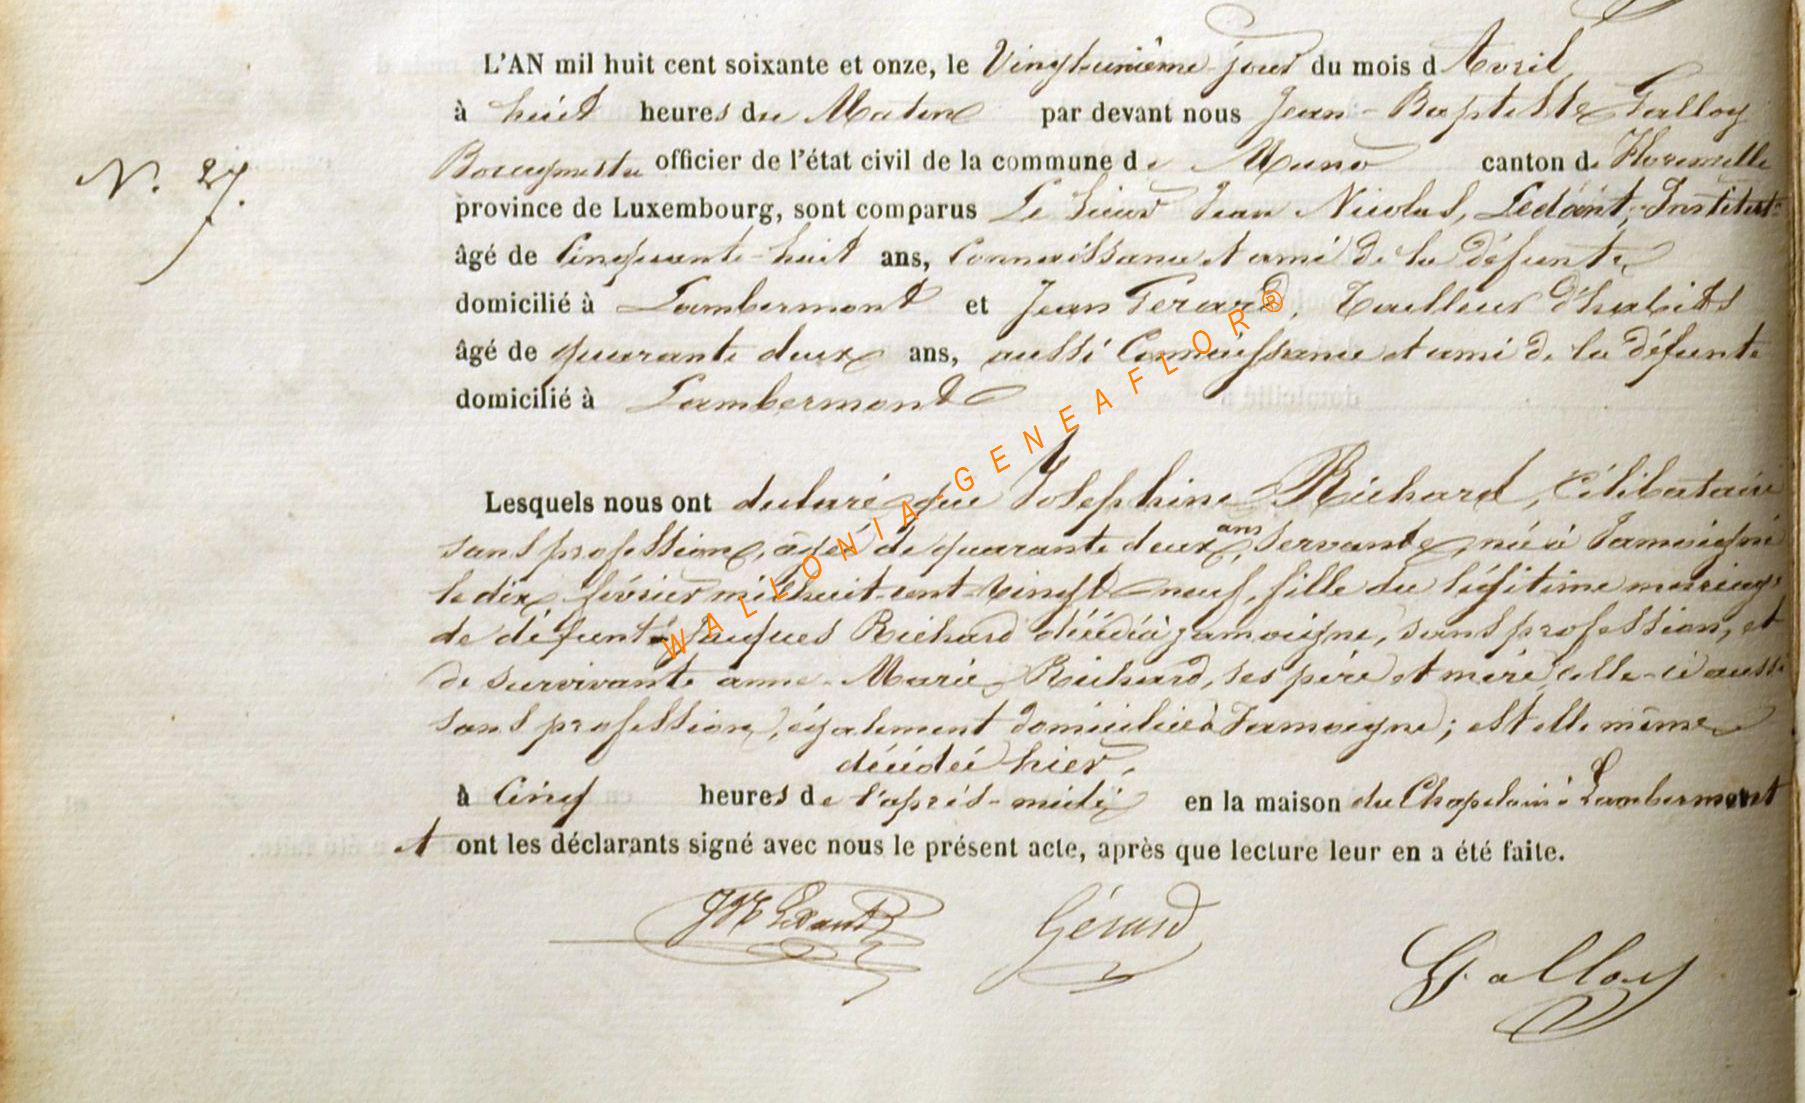 L'AN mil huit cent soixante et onze, le Vingt-unième jour du mois d'Avril
à huit heures du Matin par devant nous Jean-Baptiste Galloy
Bourgmestre officier de l'état civil de la commune de Muno canton de Florenville
N°. 27. province de Luxembourg, sont comparus Le Sieur Jean Nicolas, Ledant, Institutr
âgé de Cinquante-huit ans, Connaissance et ami de la défunte,
domicilié à Lambermont et Jean Gerard, Tailleur d'habits
âgé de quarante deux ans, aussi Connaissance et ami de la défunte
domicilié à Lambermont
Lesquels nous ont déclaré que Josephine Richard, Célibataire
sans profession, âgée de quarante deux ans, Servante, née à Jamoigne
le dix février mil huit cent vingt neuf, fille du légitime mariage
de défunt Jacques Richard décédé à jamoigne, sans profession, et
de survivante anne-Marie Richard, ses père et mère, celle-ci aussi
sans profession, également domiciliée à Jamoigne; est elle même
décédée hier,
à Cinq heures de l'après-midi en la maison du Chapelain à Lambermont
et ont les déclarants signé avec nous le présent acte, après que lecture leur en a été faite.
JN Ledant Gérard
Galloy
WALLONIA-GENEAFLOR®